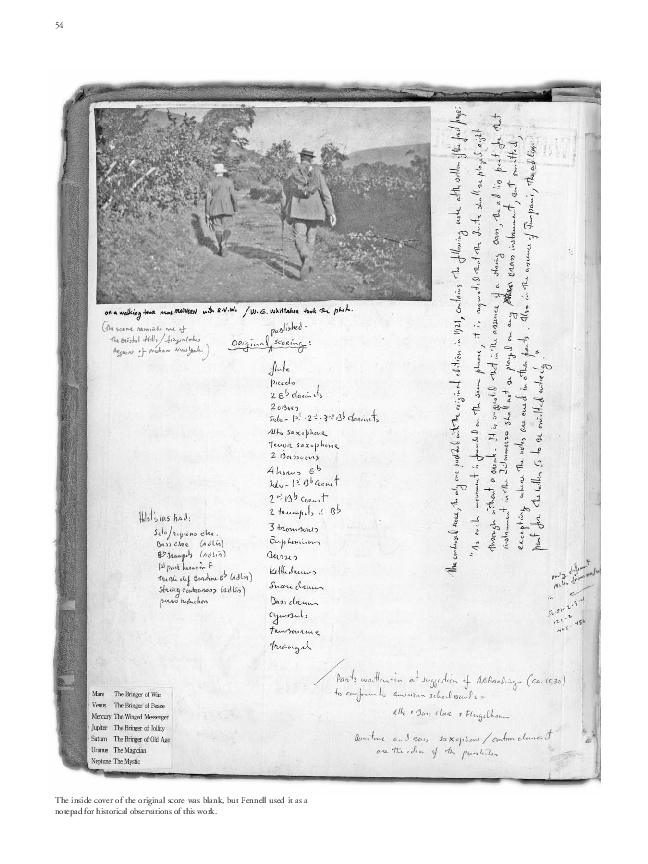 54
on a walking tour near MALVERN with R.V.W. / W.G. Whittaker took the photo.
(The scene reminds me of
the Bristol Hills /
published -
original scoring:
flute
piccolo
2 Eb clarinets
2 oboes
Solo - 1st - 2nd - 3rd Bb clarinets
Alto saxophone
Tenor saxophone
2 Bassoons
4 horns Eb
Solo - 1st Bb cornet
2nd Bb cornet
2 trumpets in Bb
3 trombones
Euphonium
Basses
Kettledrums
Snare drum
Bass drum
cymbals
tambourine
triangle
Holst's ms had:
Solo/ripieno clar.
Bass clar (adlib)
Bb trumpets (adlib)
String contrabass (adlib)
piano reduction
The condensed score, the only one published with the original edition in 1921, contains the following note at the bottom of the first page:
"As each movement is founded on the same phrase, it is requested that the Suite shall be played right
through without a break. It is suggested that in the absence of a string bass, the ad lib part for that
instrument in the Intermezzo shall not be played on any brass instrument, but omitted,
excepting where the notes are cued in other parts. Also in the absence of Timpani, the ad lib
part for the latter is to be omitted entirely."
Parts written in at suggestion of (ca. 1930)
to conform to american school bands =
Alto + Bass clar + Flugelhorn
Baritone and bass saxophone / contra clarinet
are the idea of the publisher
Mars The Bringer of War
Venus The Bringer of Peace
Mercury The Winged Messenger
Jupiter The Bringer of Jollity
Saturn The Bringer of Old Age
Uranus The Magician
Neptune The Mystic
The inside cover of the original score was blank, but Fennell used it as a
notepad for historical observations of this work.